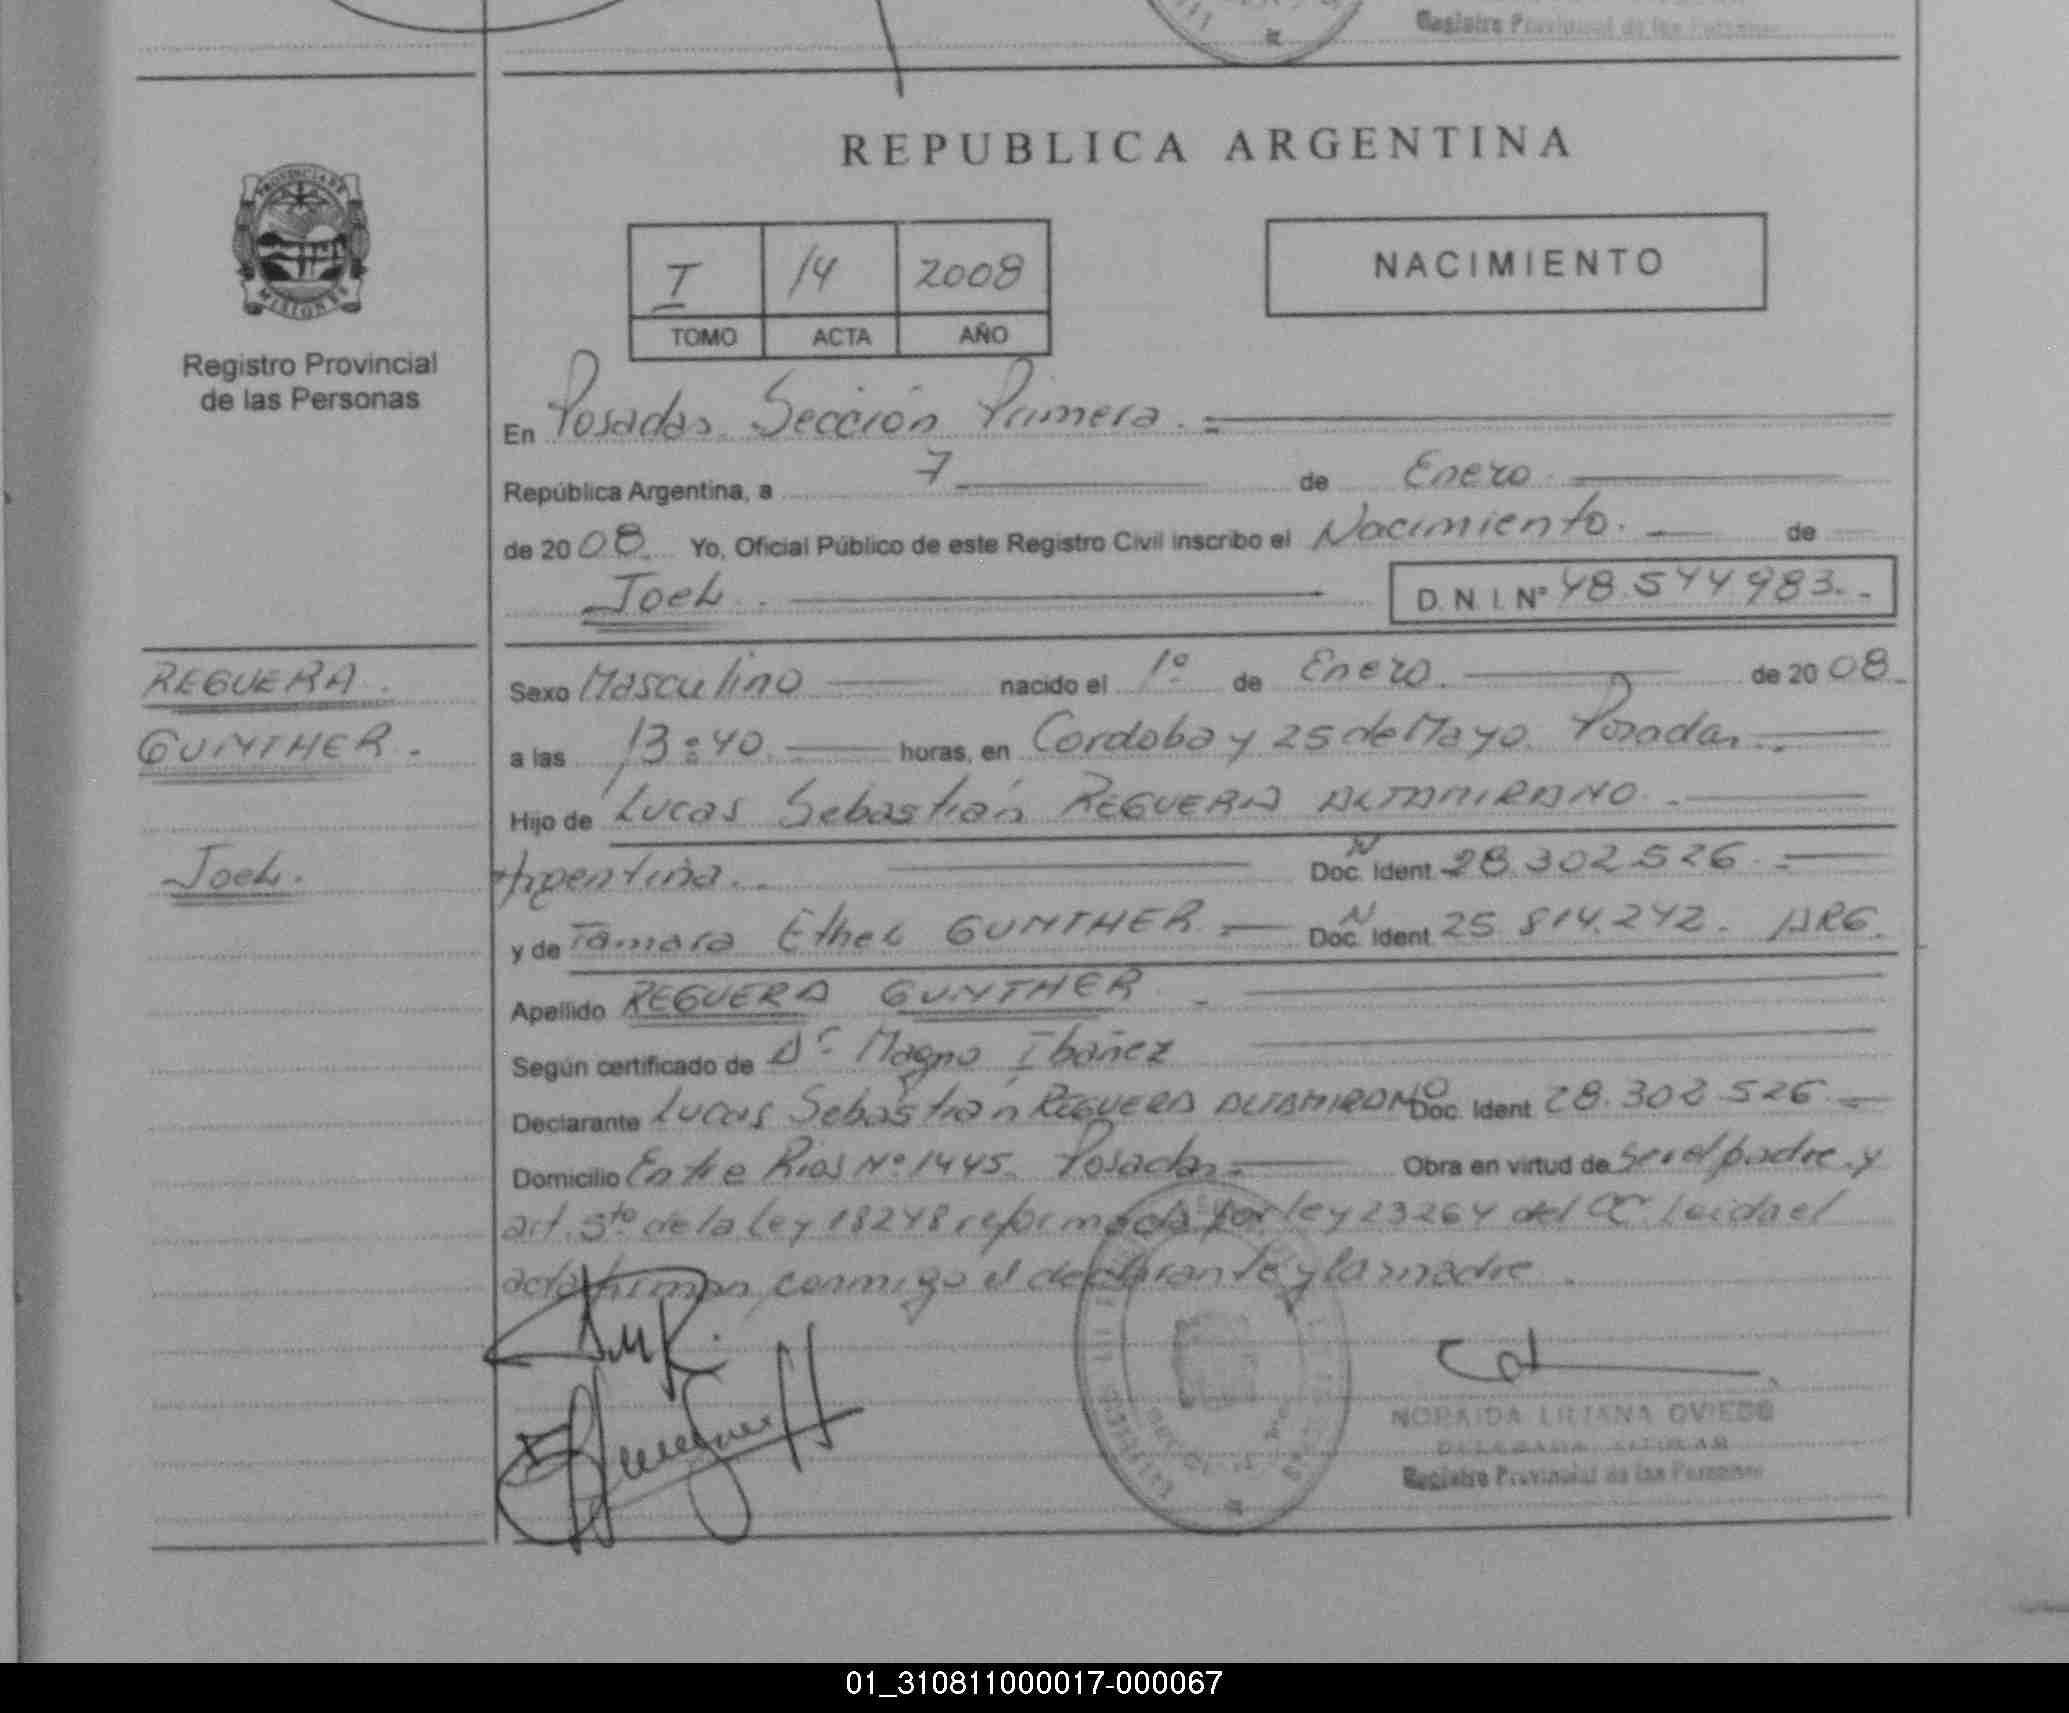 Registro Provincial de las Personas
REPUBLICA ARGENTINA
PROVINCIA DE
MISIONES
Registro Provincial
de las Personas
I 14 2008
TOMO ACTA AÑO
NACIMIENTO
En Posadas. Sección Primera.
República Argentina, a 7 de Enero
de 2008. Yo, Oficial Público de este Registro Civil inscribo el Nacimiento. de
Joel. D.N.I. Nº 48.544983.
REGUERA.
GUNTHER.
Joel.
Sexo Masculino nacido el 1º de Enero. de 2008
a las 13:40. horas, en Cordoba y 25 de Mayo. Posadas.
Hijo de Lucas Sebastián REGUERA ALTAMIRANO.
Argentina. Doc. Ident. N 28.302.526.
y de Tamara Ethel GUNTHER Doc. Ident. N 25.814.242. ARG.
Apellido REGUERA GUNTHER
Según certificado de Dr Magno Ibañez
Declarante Lucas Sebastián REGUERA ALTAMIRANO Doc. Ident. 28.302.526.
Domicilio Entre Rios Nº 1445. Posadas. Obra en virtud de ser el padre y
art. 5to de la Ley 18248 reformada por ley 23264 del CC. Leida el
acta firman conmigo el declarante y la madre.
NORAIDA LILIANA OVIEDO
DELEGADA TITULAR
Registro Provincial de las Personas
01_310811000017-000067